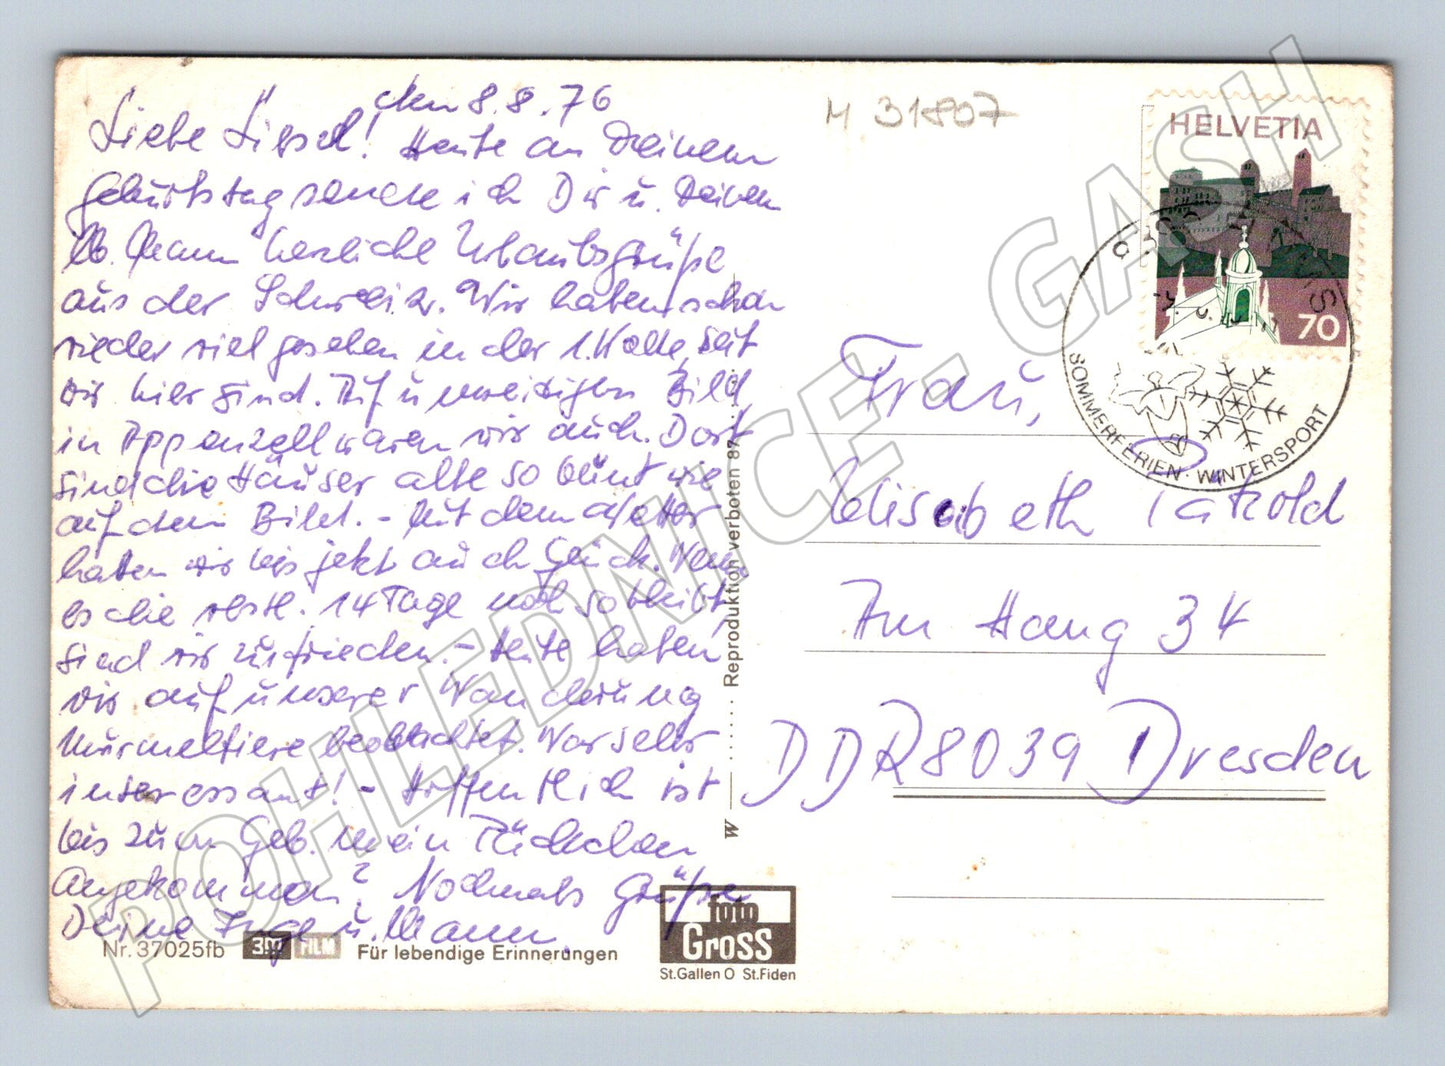 den 8.8.76
Liebe Liesel! Heute an Deinem
Geburtstag sende ich Dir u. Deinem
lb. Mann herzliche Urlaubsgrüße
aus der Schweiz. Wir haben schon
wieder viel gesehen in der 1. Woche, seit
wir hier sind. Auf umseitigem Bild,
in Appenzell waren wir auch. Dort
sind die Häuser alle so bunt wie
auf dem Bild. – Mit dem Wetter
haben wir bis jetzt auch Glück. Wenn
es die restl. 14 Tage noch so bleibt,
sind wir zufrieden. – Heute haben
wir auf unserer Wanderung
Murmeltiere beobachtet. War sehr
interessant! – Hoffentlich ist
bis zum Geb. mein Päckchen
angekommen? Nochmals Grüße
Deine Inge u. Mann.
Nr. 37025fb 3M FILM Für lebendige Erinnerungen
foto
Gross
St.Gallen O St.Fiden
W ...... Reproduktion verboten 87
M 31807
HELVETIA
70
SOMMERFERIEN · WINTERSPORT
Frau,
Elisabeth
Am Hang 34
DDR 8039 Dresden
POHLEDNICE - GASH